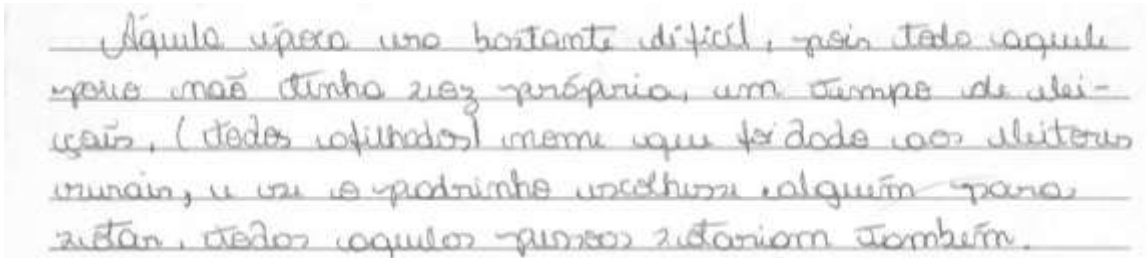 Aquila época era bastante difícil, pois todo aquele
povo não tinha voz própria, um tempo de elei-
çois, (todos afilhados) nome que foi dado aos eleitores
rurais, e se o padrinho escolhesse alguém para
votar, todos aquelas pessoas votariam também.